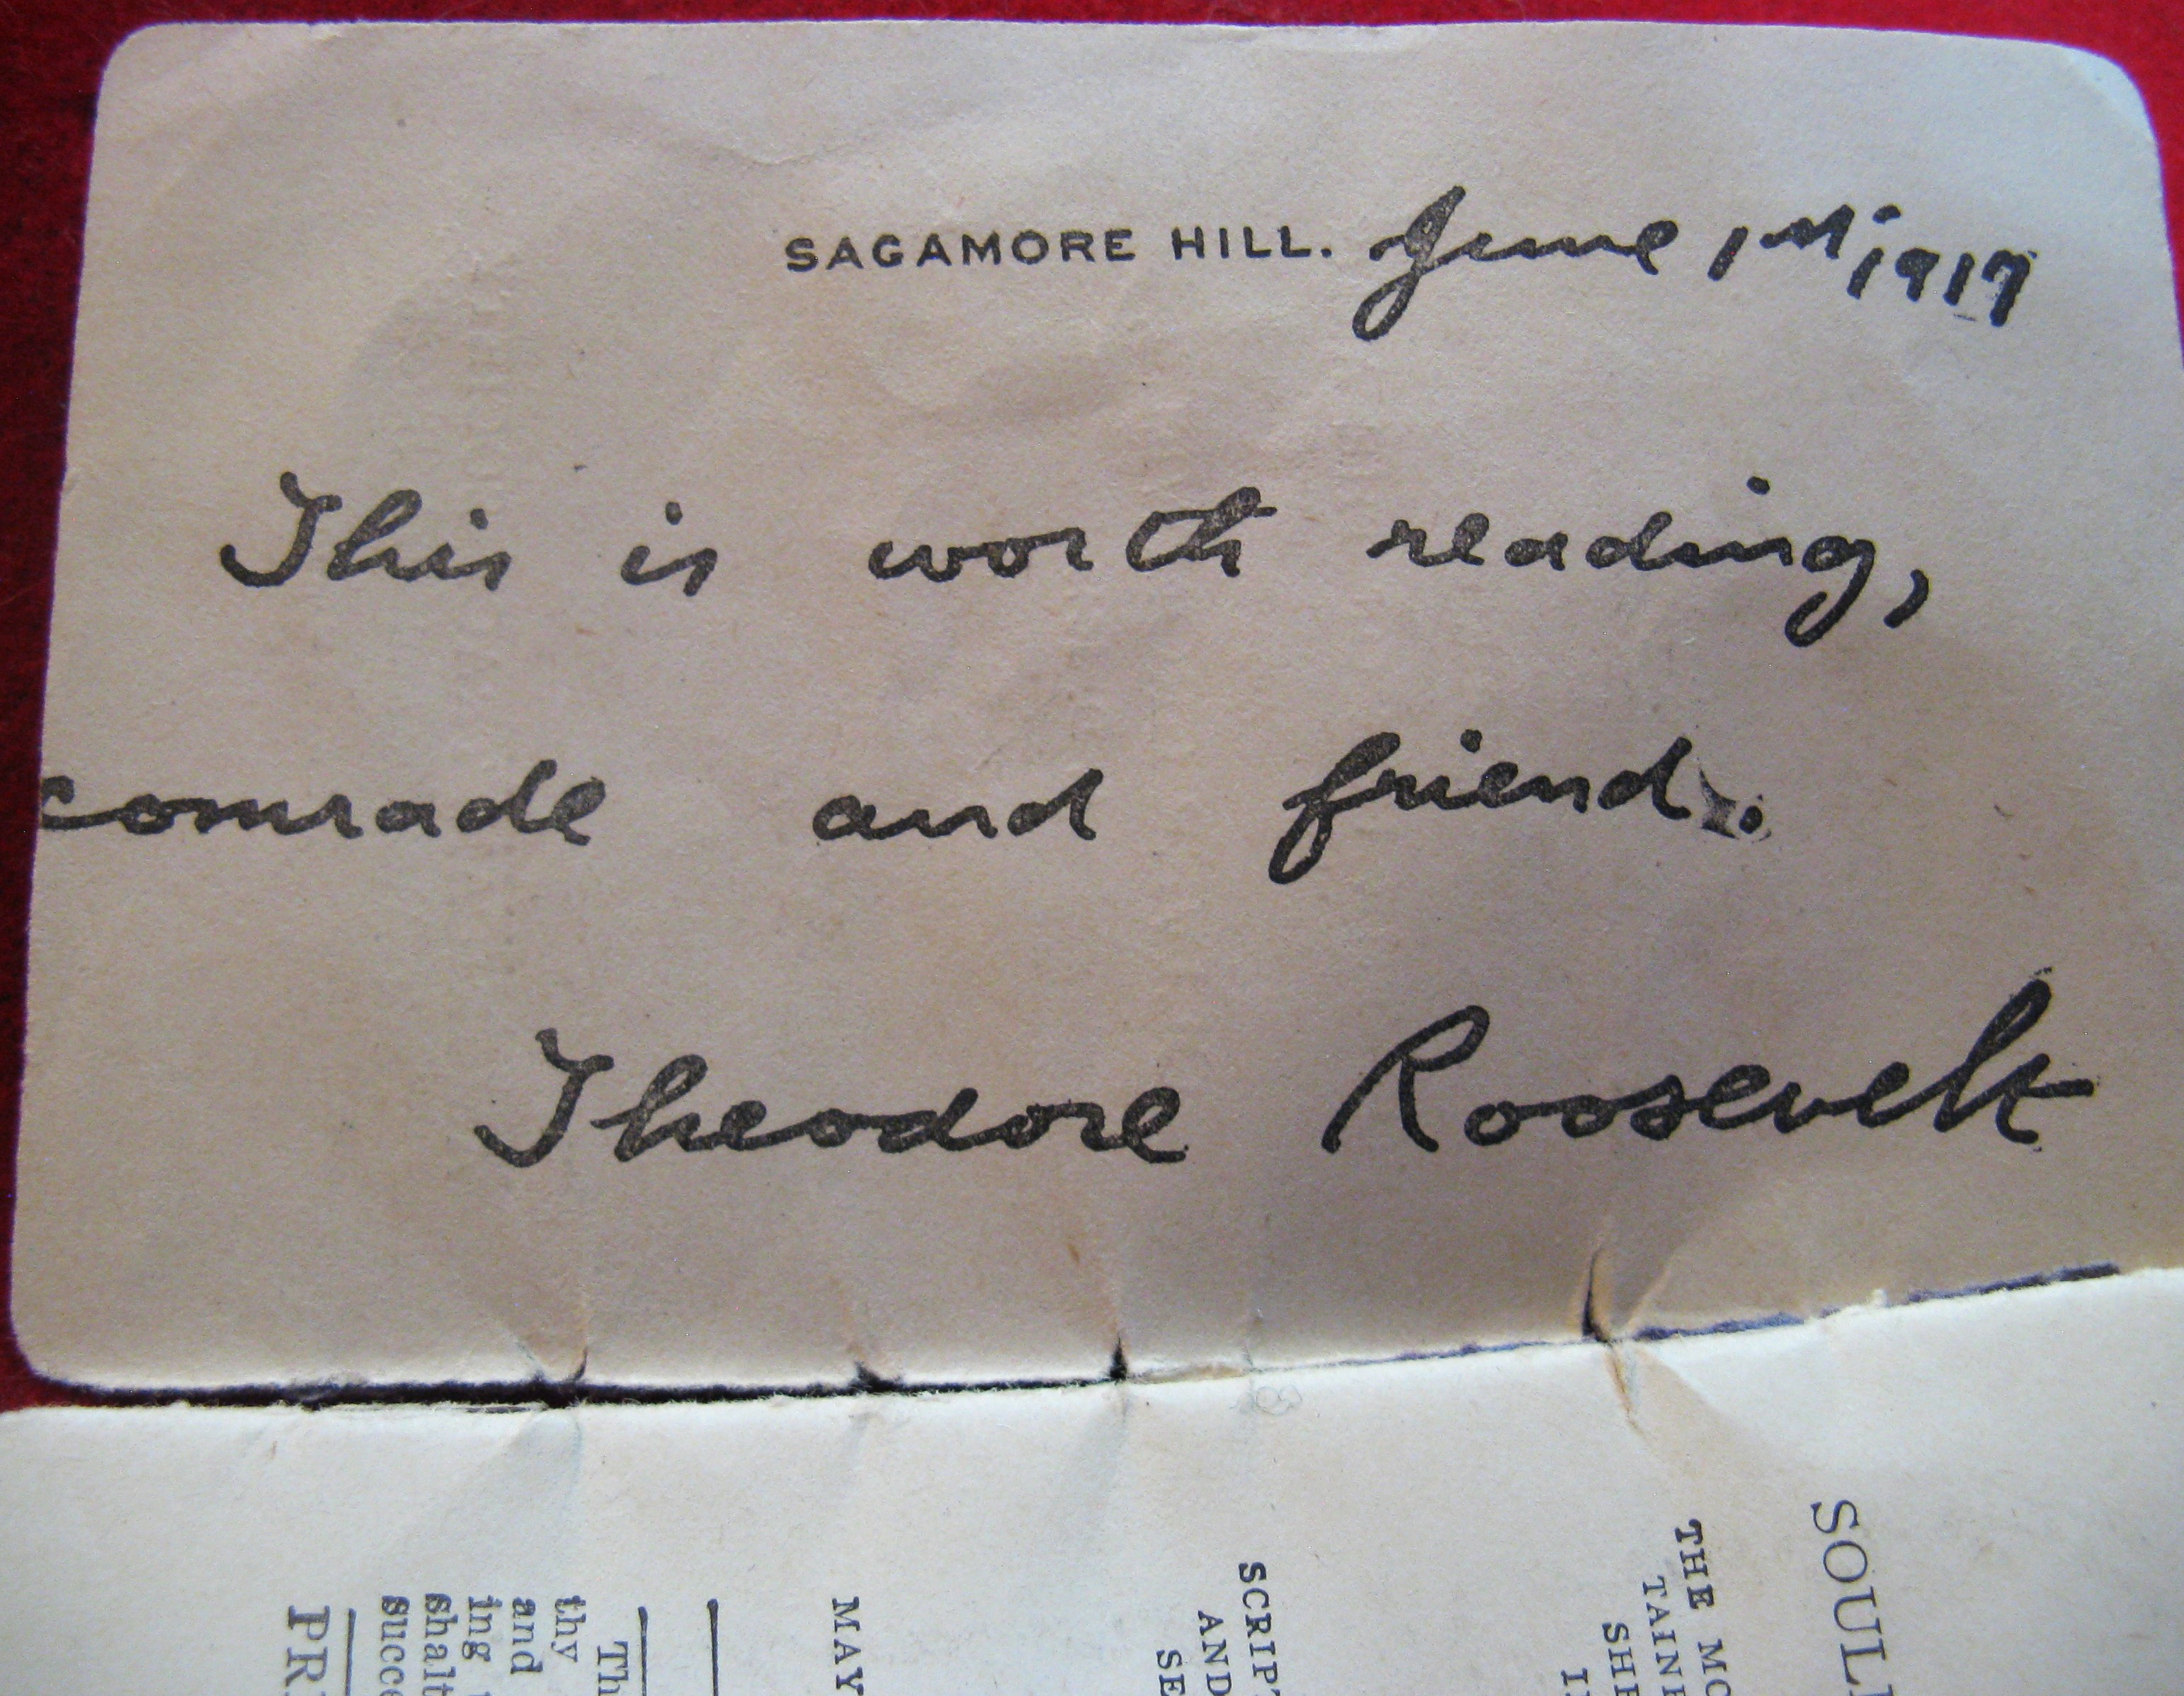 SAGAMORE HILL. June 1st 1917
This is worth reading,
comrade and friend.
Theodore Roosevelt
SOUL
THE MO
TAIN
SHE
SCRIPT
AND
SE
MAY
Th
thy
and
ing
shalt
succe
PR